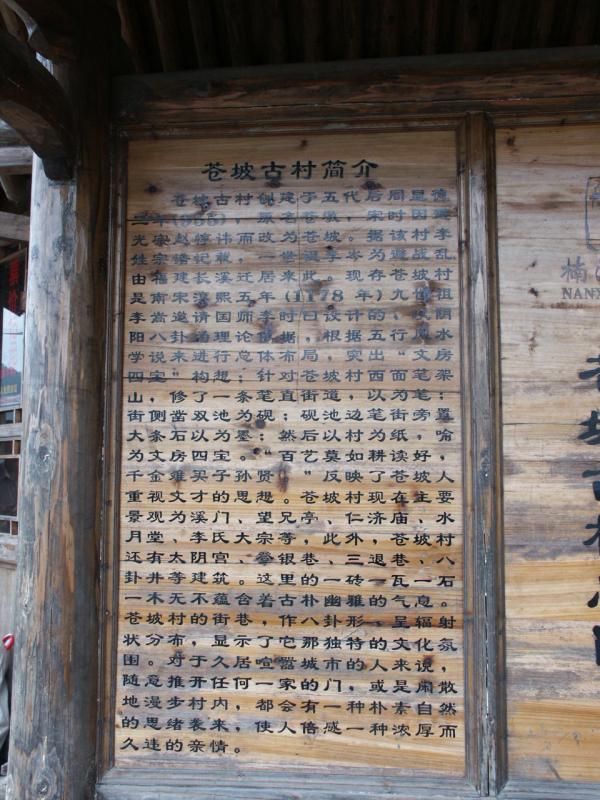 苍坡古村简介
苍坡古村创建于五代后周显德
二年(955),原名苍墩,宋时因
光宗赵惇讳而改为苍坡。据该村李
姓宗谱记载,一世祖李岑为避战乱
由福建长溪迁居来此。现存苍坡村
是南宋淳熙五年(1178 年)九世祖
李嵩邀请国师李时日设计的,以阴
阳八卦诸理论依据,根据五行风水
学说来进行总体布局,突出“文房
四宝”构想;针对苍坡村西面笔架
山,修了一条笔直街道,以为笔;
街侧凿双池为砚;砚池边笔街旁置
大条石以为墨;然后以村为纸,喻
为文房四宝。“百艺莫如耕读好,
千金难买子孙贤!”反映了苍坡人
重视文才的思想。苍坡村现在主要
景观为溪门、望兄亭、仁济庙、水
月堂、李氏大宗等,此外,苍坡村
还有太阴宫、拳银巷、三退巷、八
卦井等建筑。这里的一砖一瓦一石
一木无不蕴含着古朴幽雅的气息。
苍坡村的街巷,作八卦形,呈辐射
状分布,显示了它那独特的文化氛
围。对于久居喧嚣城市的人来说,
随意推开任何一家的门,或是闲散
地漫步村内,都会有一种朴素自然
的思绪袭来,使人倍感一种浓厚而
久违的亲情。
楠
NANX
苍坡古村